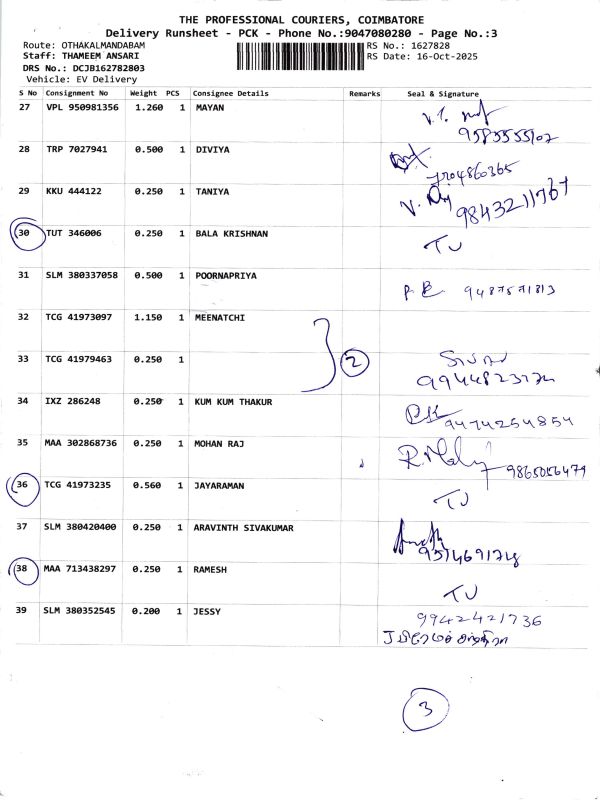 THE PROFESSIONAL COURIERS, COIMBATORE
Delivery Runsheet - PCK - Phone No.:9047080280 - Page No.:3
Route: OTHAKALMANDABAM
RS No.: 1627828
Staff: THAMEEM ANSARI
RS Date: 16-Oct-2025
DRS No.: DCJB162782803
Vehicle: EV Delivery
S No Consignment No Weight PCS Consignee Details Remarks Seal & Signature
27 VPL 950981356 1.260 1 MAYAN
28 TRP 7027941 0.500 1 DIVIYA
29 KKU 444122 0.250 1 TANIYA
9843211767
30 TUT 346006 0.250 1 BALA KRISHNAN
TJ
31 SLM 380337058 0.500 1 POORNAPRIYA
32 TCG 41973097 1.150 1 MEENATCHI
2
33 TCG 41979463 0.250 1
34 IXZ 286248 0.250 1 KUM KUM THAKUR
9474254854
35 MAA 302868736 0.250 1 MOHAN RAJ
9865056479
36 TCG 41973235 0.560 1 JAYARAMAN
TJ
37 SLM 380420400 0.250 1 ARAVINTH SIVAKUMAR
38 MAA 713438297 0.250 1 RAMESH
TJ
39 SLM 380352545 0.200 1 JESSY
9942421736
3